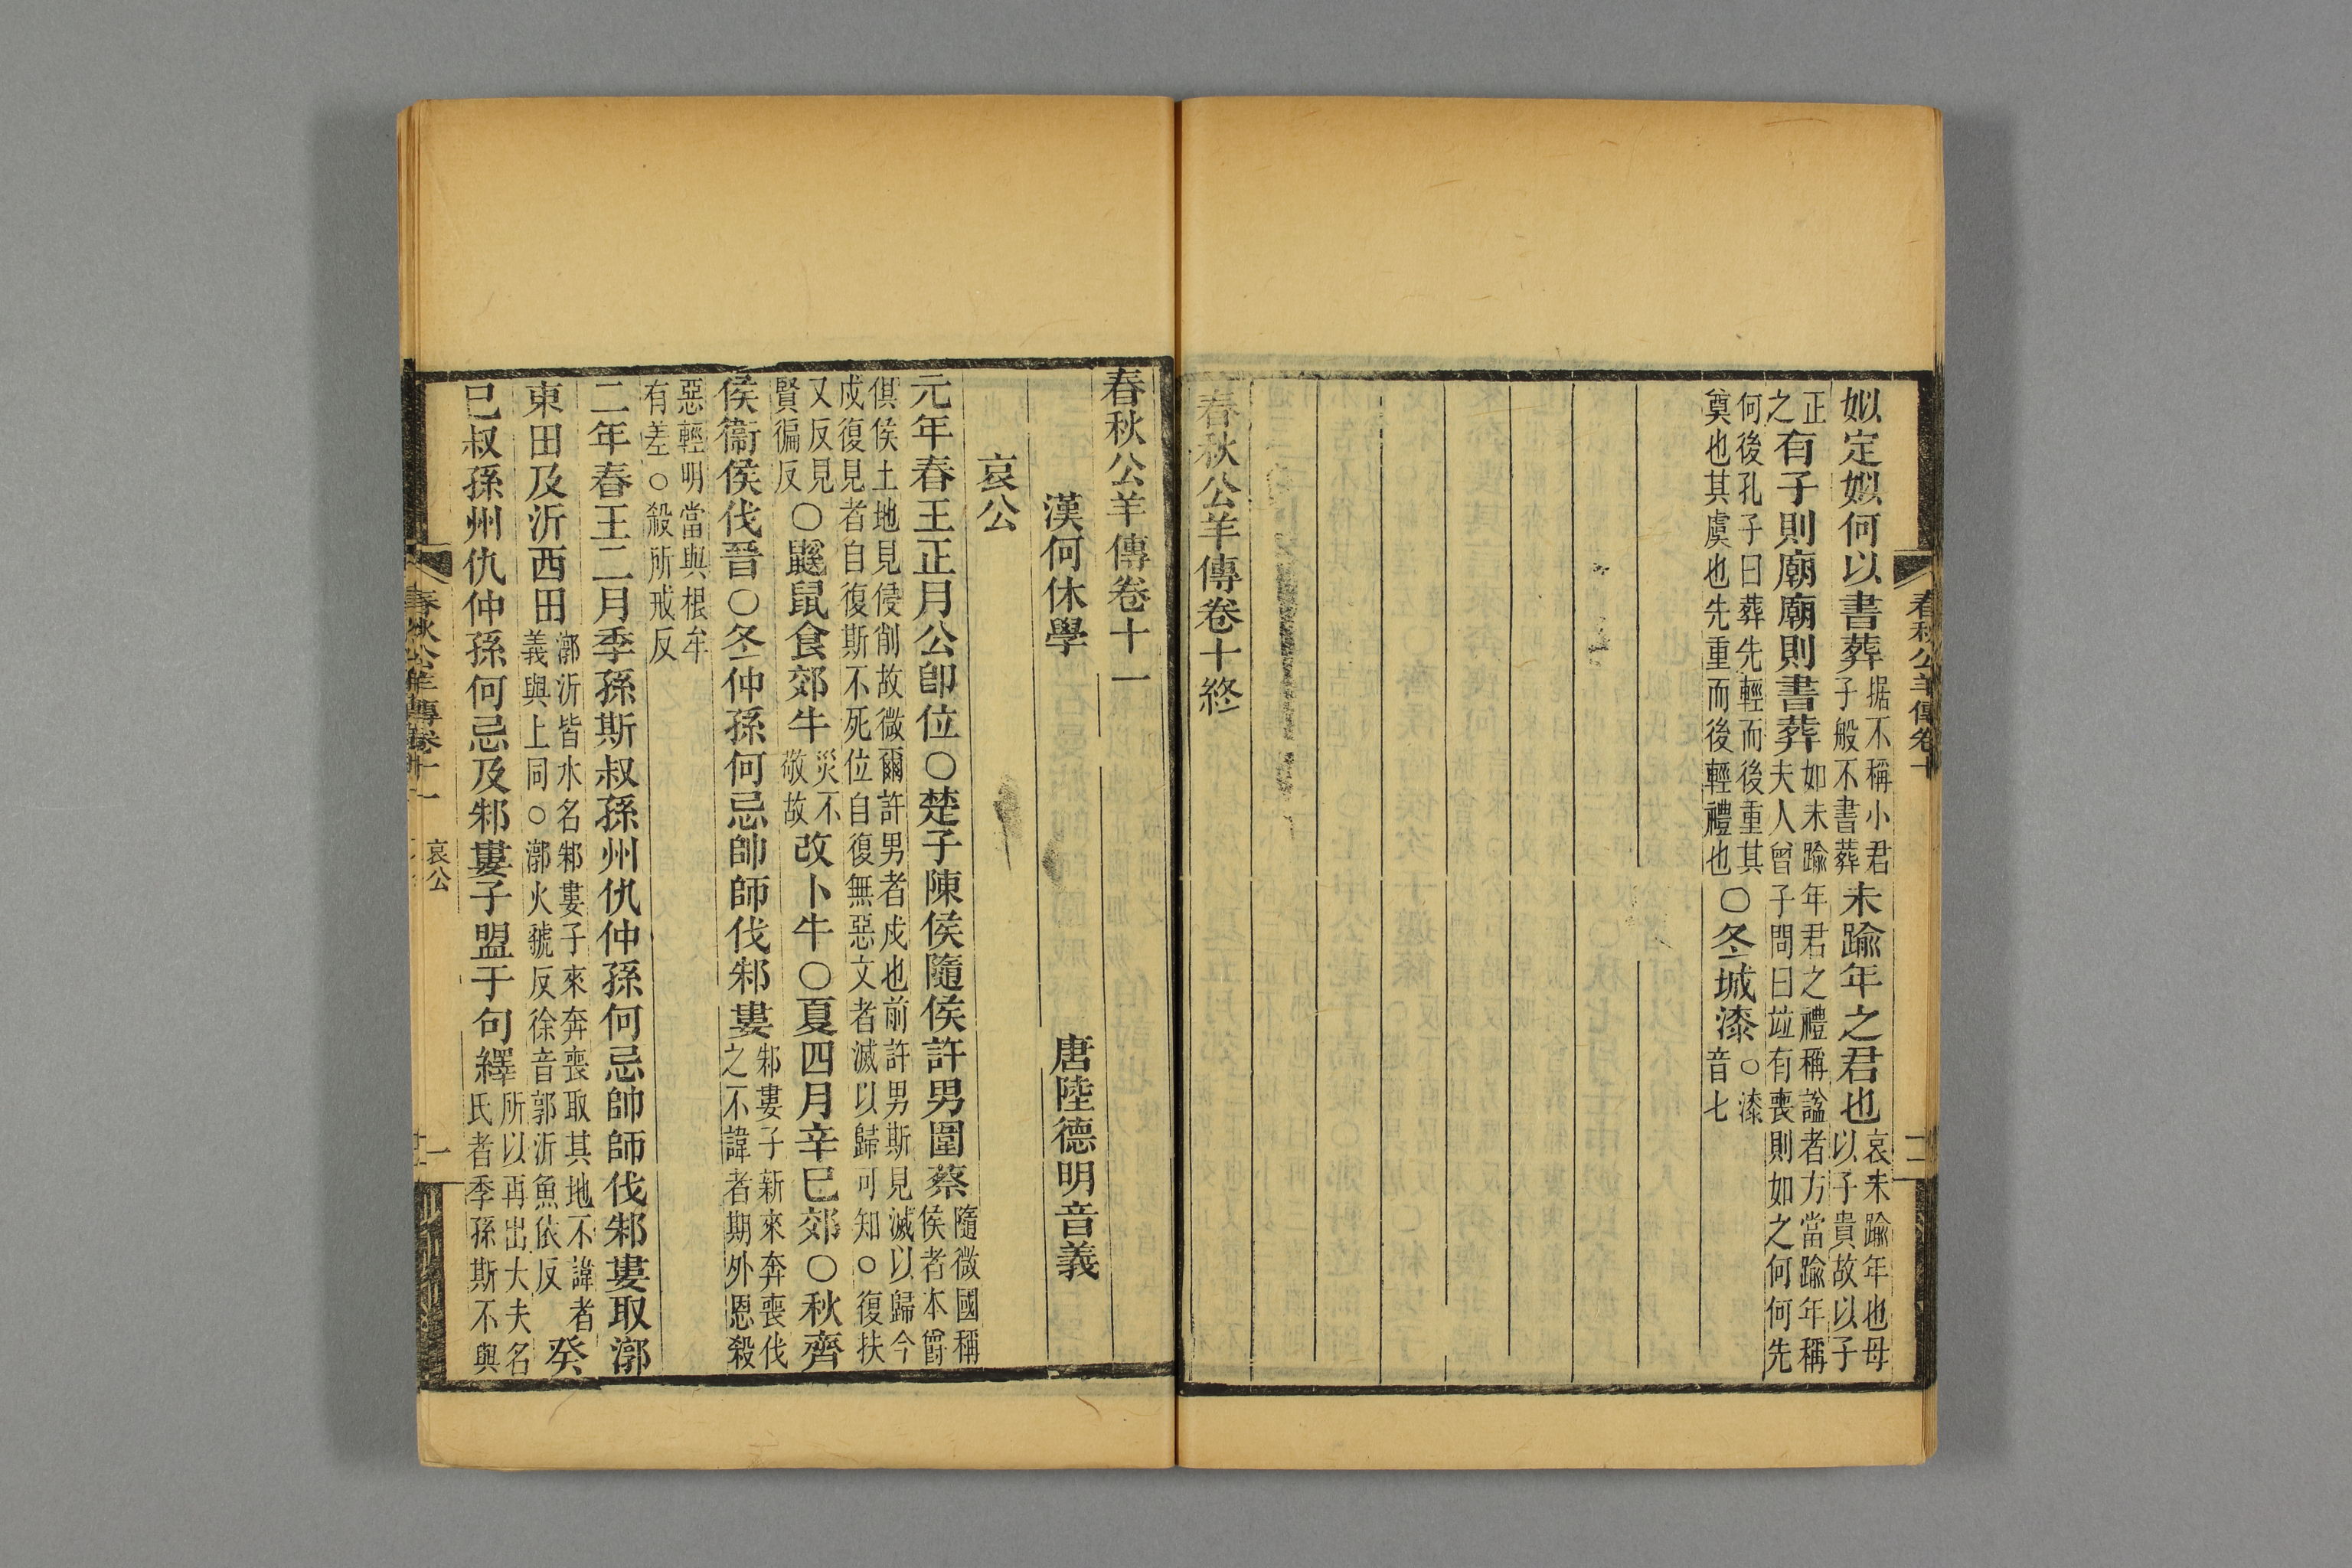 春秋公羊傳卷十
二
姒定姒何以書葬據不稱小君子般不書葬未踰年之君也哀未踰年也母以子貴故以子
正之有子則廟廟則書葬如未踰年君之禮稱諡者方當踰年稱夫人曾子問曰竝有喪則如之何何先
何後孔子曰葬先輕而後重其奠也其虞也先重而後輕禮也○冬城漆○漆音七
春秋公羊傳卷十終
春秋公羊傳卷十一
漢何休學 唐陸德明音義
哀公
元年春王正月公卽位○楚子陳侯隨侯許男圍蔡隨微國稱侯者本爵
俱侯土地見侵削故微爾許男者戍也前許男斯見滅以歸今戍復見者自復斯不死位自復無惡文者滅以歸可知○復扶
又反見賢徧反○鼷鼠食郊牛災不敬故改卜牛○夏四月辛巳郊○秋齊
侯衞侯伐晉○冬仲孫何忌帥師伐邾婁邾婁子新來奔喪伐之不諱者期外恩殺
惡輕明當與根牟有差○殺所戒反
二年春王二月季孫斯叔孫州仇仲孫何忌帥師伐邾婁取漷
東田及沂西田漷沂皆水名邾婁子來奔喪取其地不諱者義與上同○漷火虢反徐音郭沂魚依反癸
巳叔孫州仇仲孫何忌及邾婁子盟于句繹所以再出大夫名氏者季孫斯不與
春秋公羊傳卷十一
哀公
一